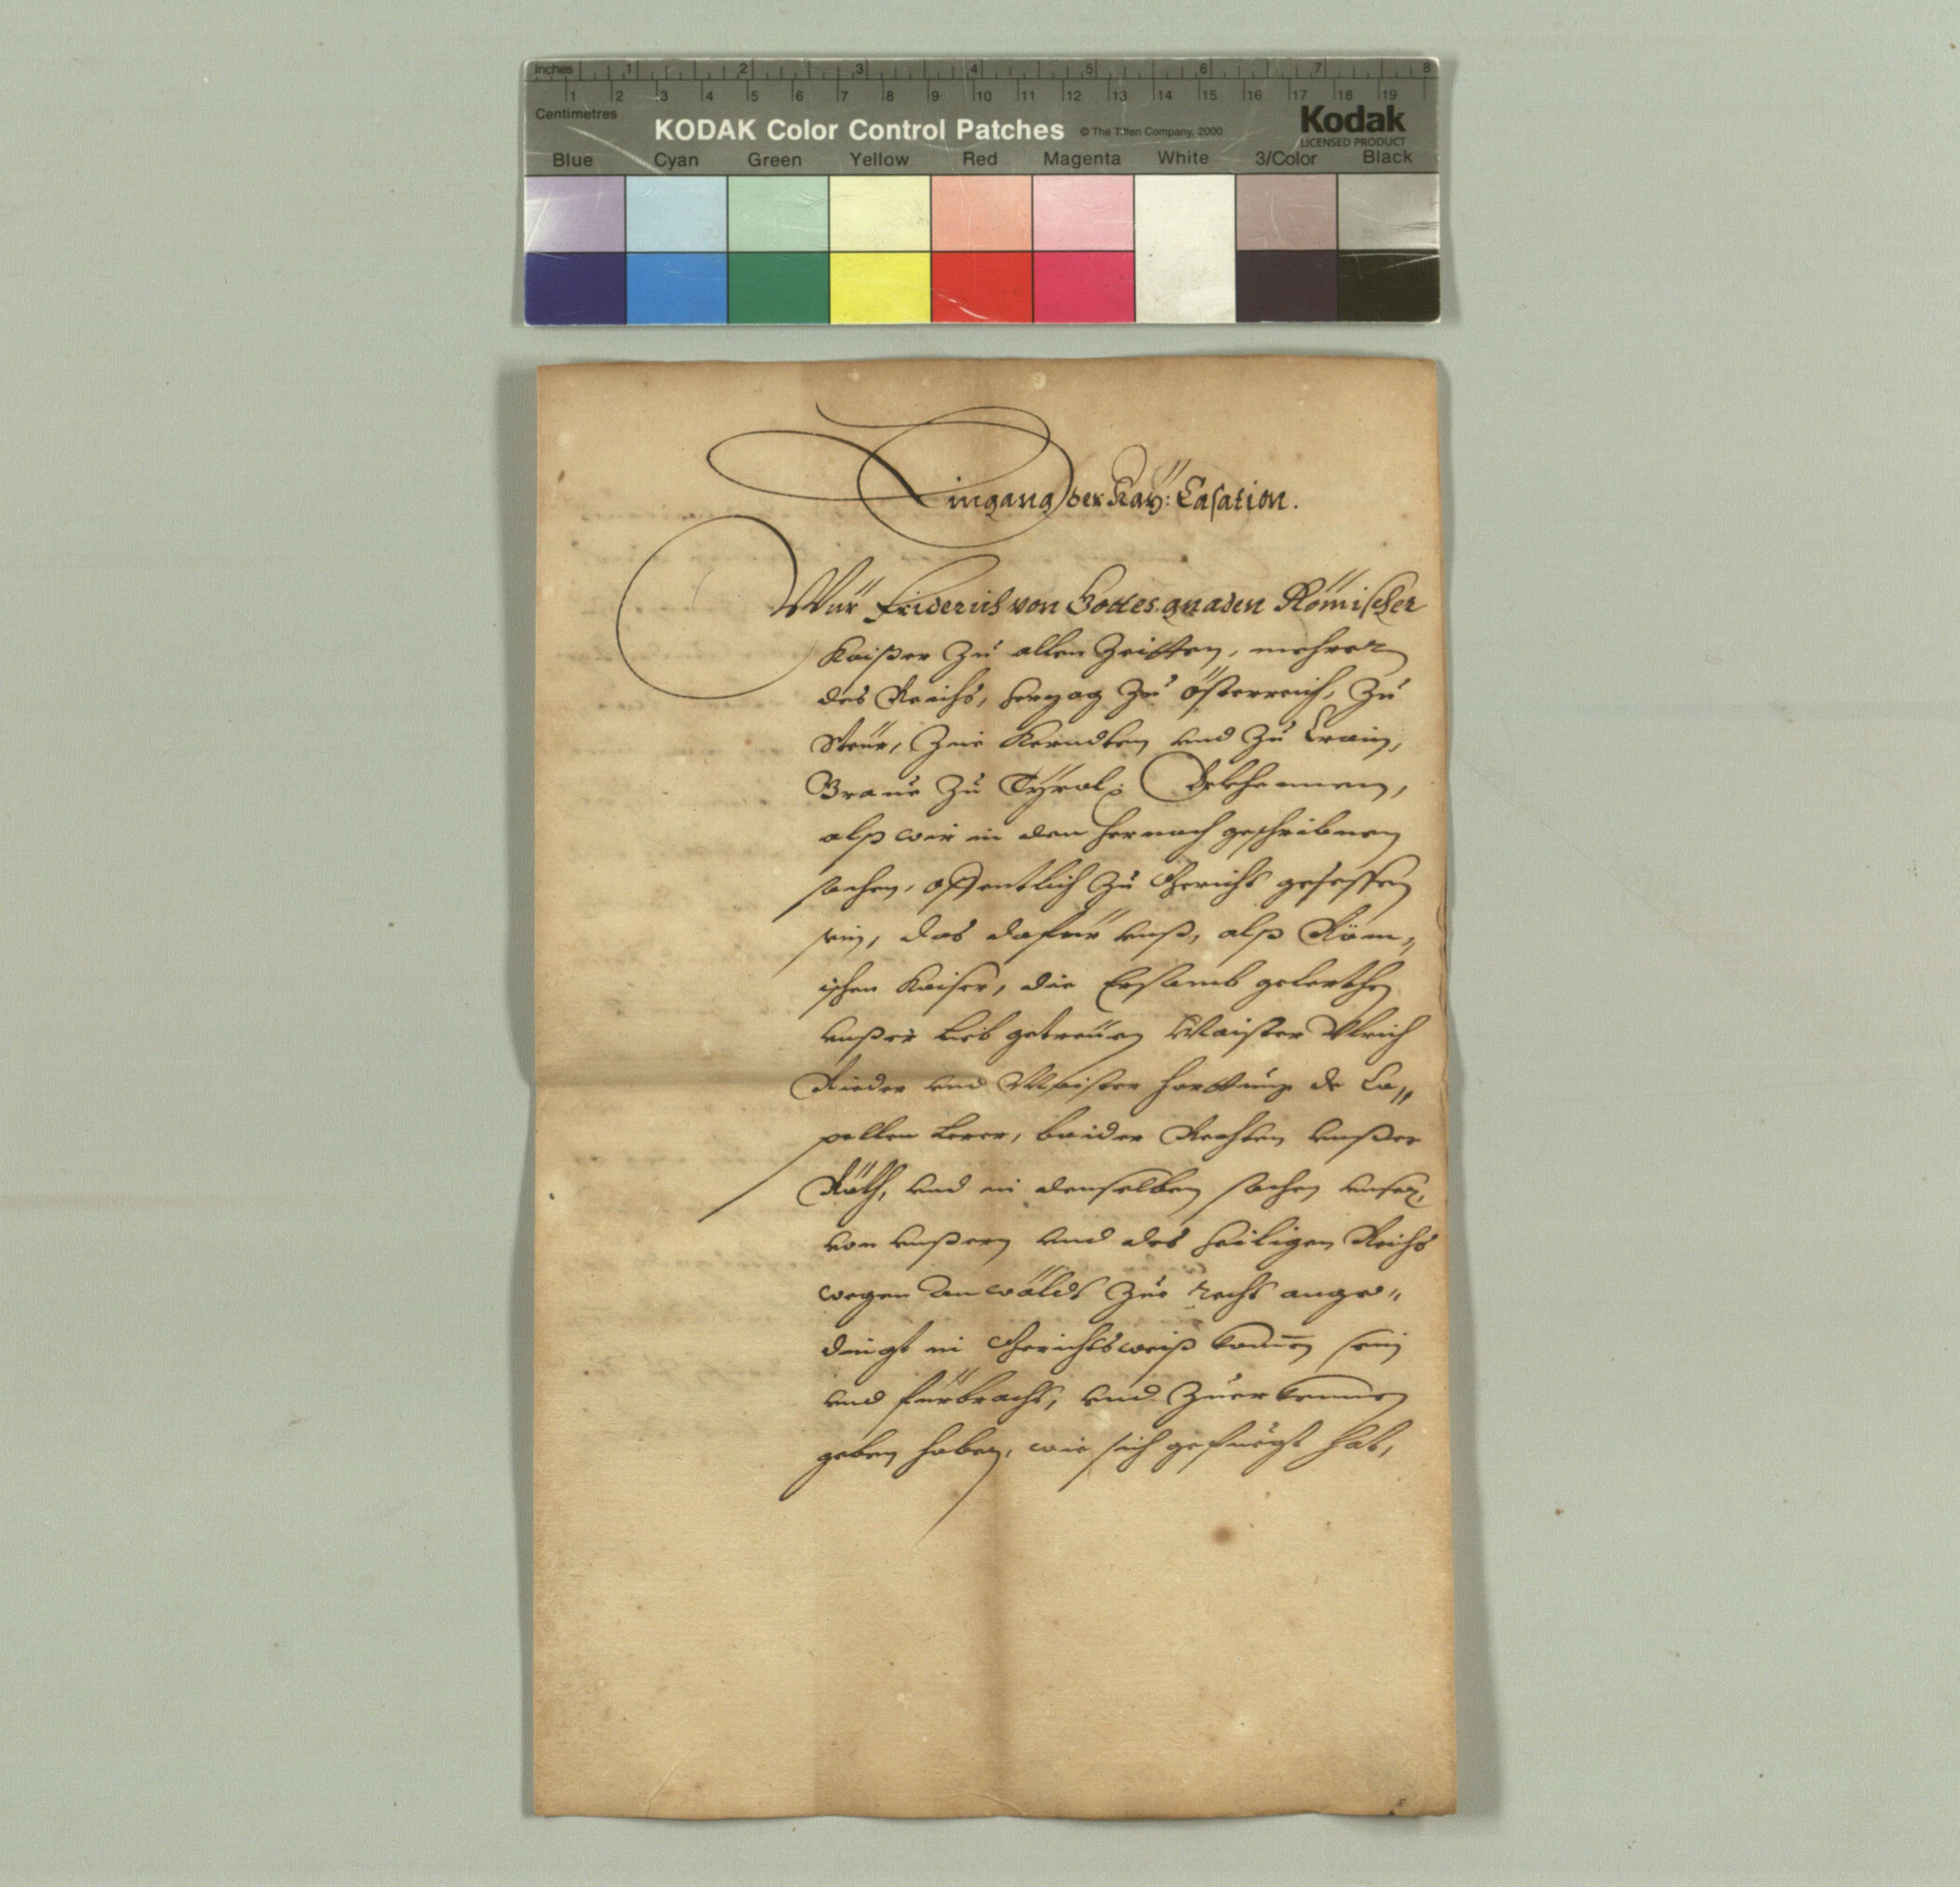 inches 1 2 3 4 5 6 7 8
1 2 3 4 5 6 7 8 9 10 11 12 13 14 15 16 17 18 19
Centimetres
KODAK Color Control Patches © The Tiffen Company, 2000 Kodak
LICENSED PRODUCT
Blue Cyan Green Yellow Red Magenta White 3/Color Black
Eingang der Kaÿ: Casation.
Wür Friderich von Gottes gnaden Römischer
Kaißer zu allen Zeitten, mehrer
des Reichs, herzog zu österreich, zu
Steür, zue Kerndten vnd zu Crain,
Graue zu Tÿrol: Bekhennen,
alß wir in den hernach geschribnen
sachen, offentlich zu Gericht gesessen
sein, das dafür vnß, alß Röm„
ischen Kaiser, die Ersamb gelerthen
vnßer lieb getreüen Maister Vlrich
Rieder vnd Maister Harttung de Ca„
pellen Lerer, baider Rechten vnßer
Räth, vnd in denselben sachen vnser,
von vnßern vnd des heiligen Reichs
wegen anwäldt zue recht ange„
dingt in Gerichtsweiß komen sein
vnd fürbracht, vnd zuerkennen
geben haben, wie sich gefüegt hat,